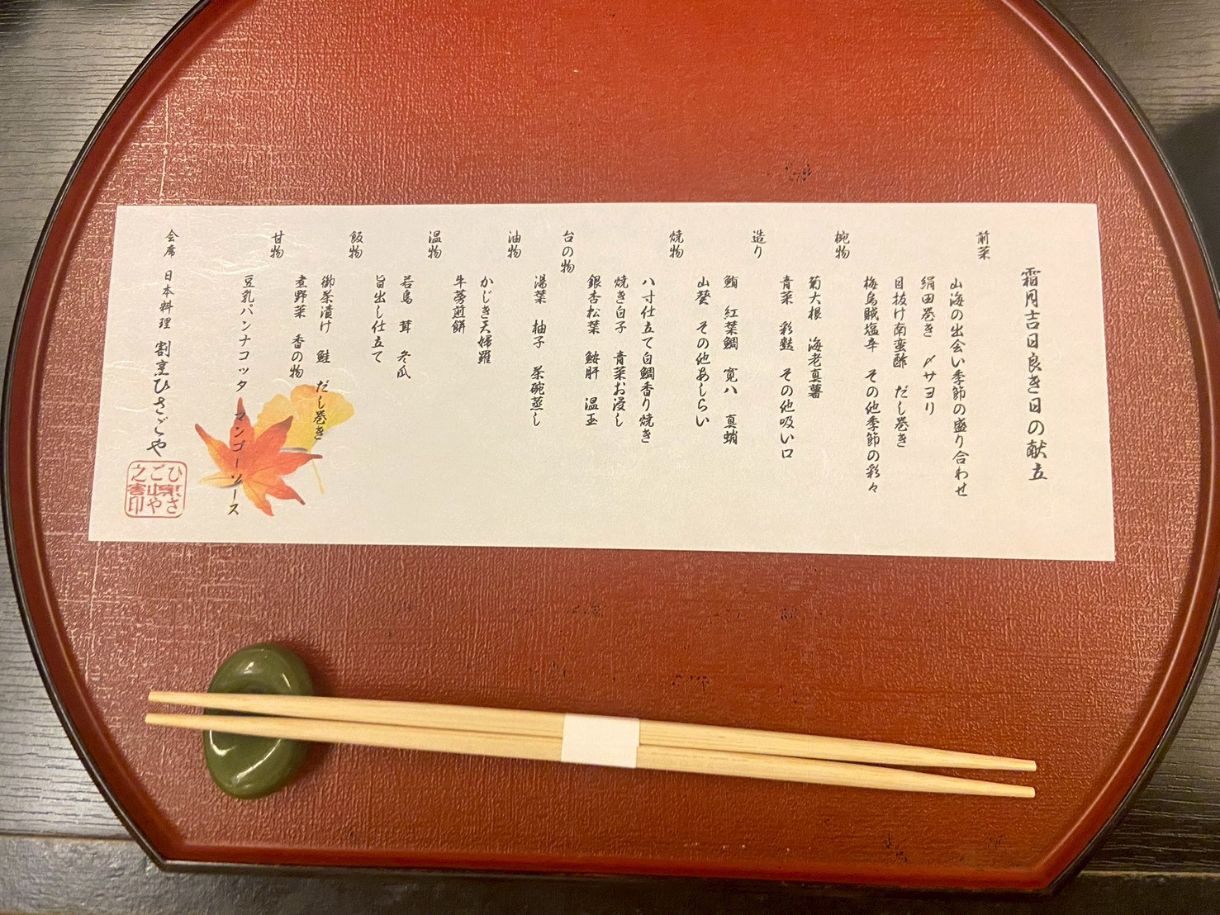 霜月吉日良き日の献立
前菜
山海の出会い季節の盛り合わせ
絹田巻き 〆サヨリ
目抜け南蛮酢 だし巻き
梅烏賊塩辛 その他季節の彩々
椀物
菊大根 海老真薯
青菜 彩麩 その他吸い口
造り
鮪 紅葉鯛 寛八 真蛸
山葵 その他あしらい
焼物
八寸仕立て白鯛香り焼き
焼き白子 青菜お浸し
銀杏松葉 鮟肝 温玉
台の物
湯葉 柚子 茶碗蒸し
油物
かじき天婦羅
牛蒡煎餅
温物
若鳥 茸 冬瓜
旨出し仕立て
飯物
御茶漬け 鮭 だし巻き
煮野菜 香の物
甘物
豆乳パンナコッタ マンゴーソース
会席 日本料理 割烹ひさごや